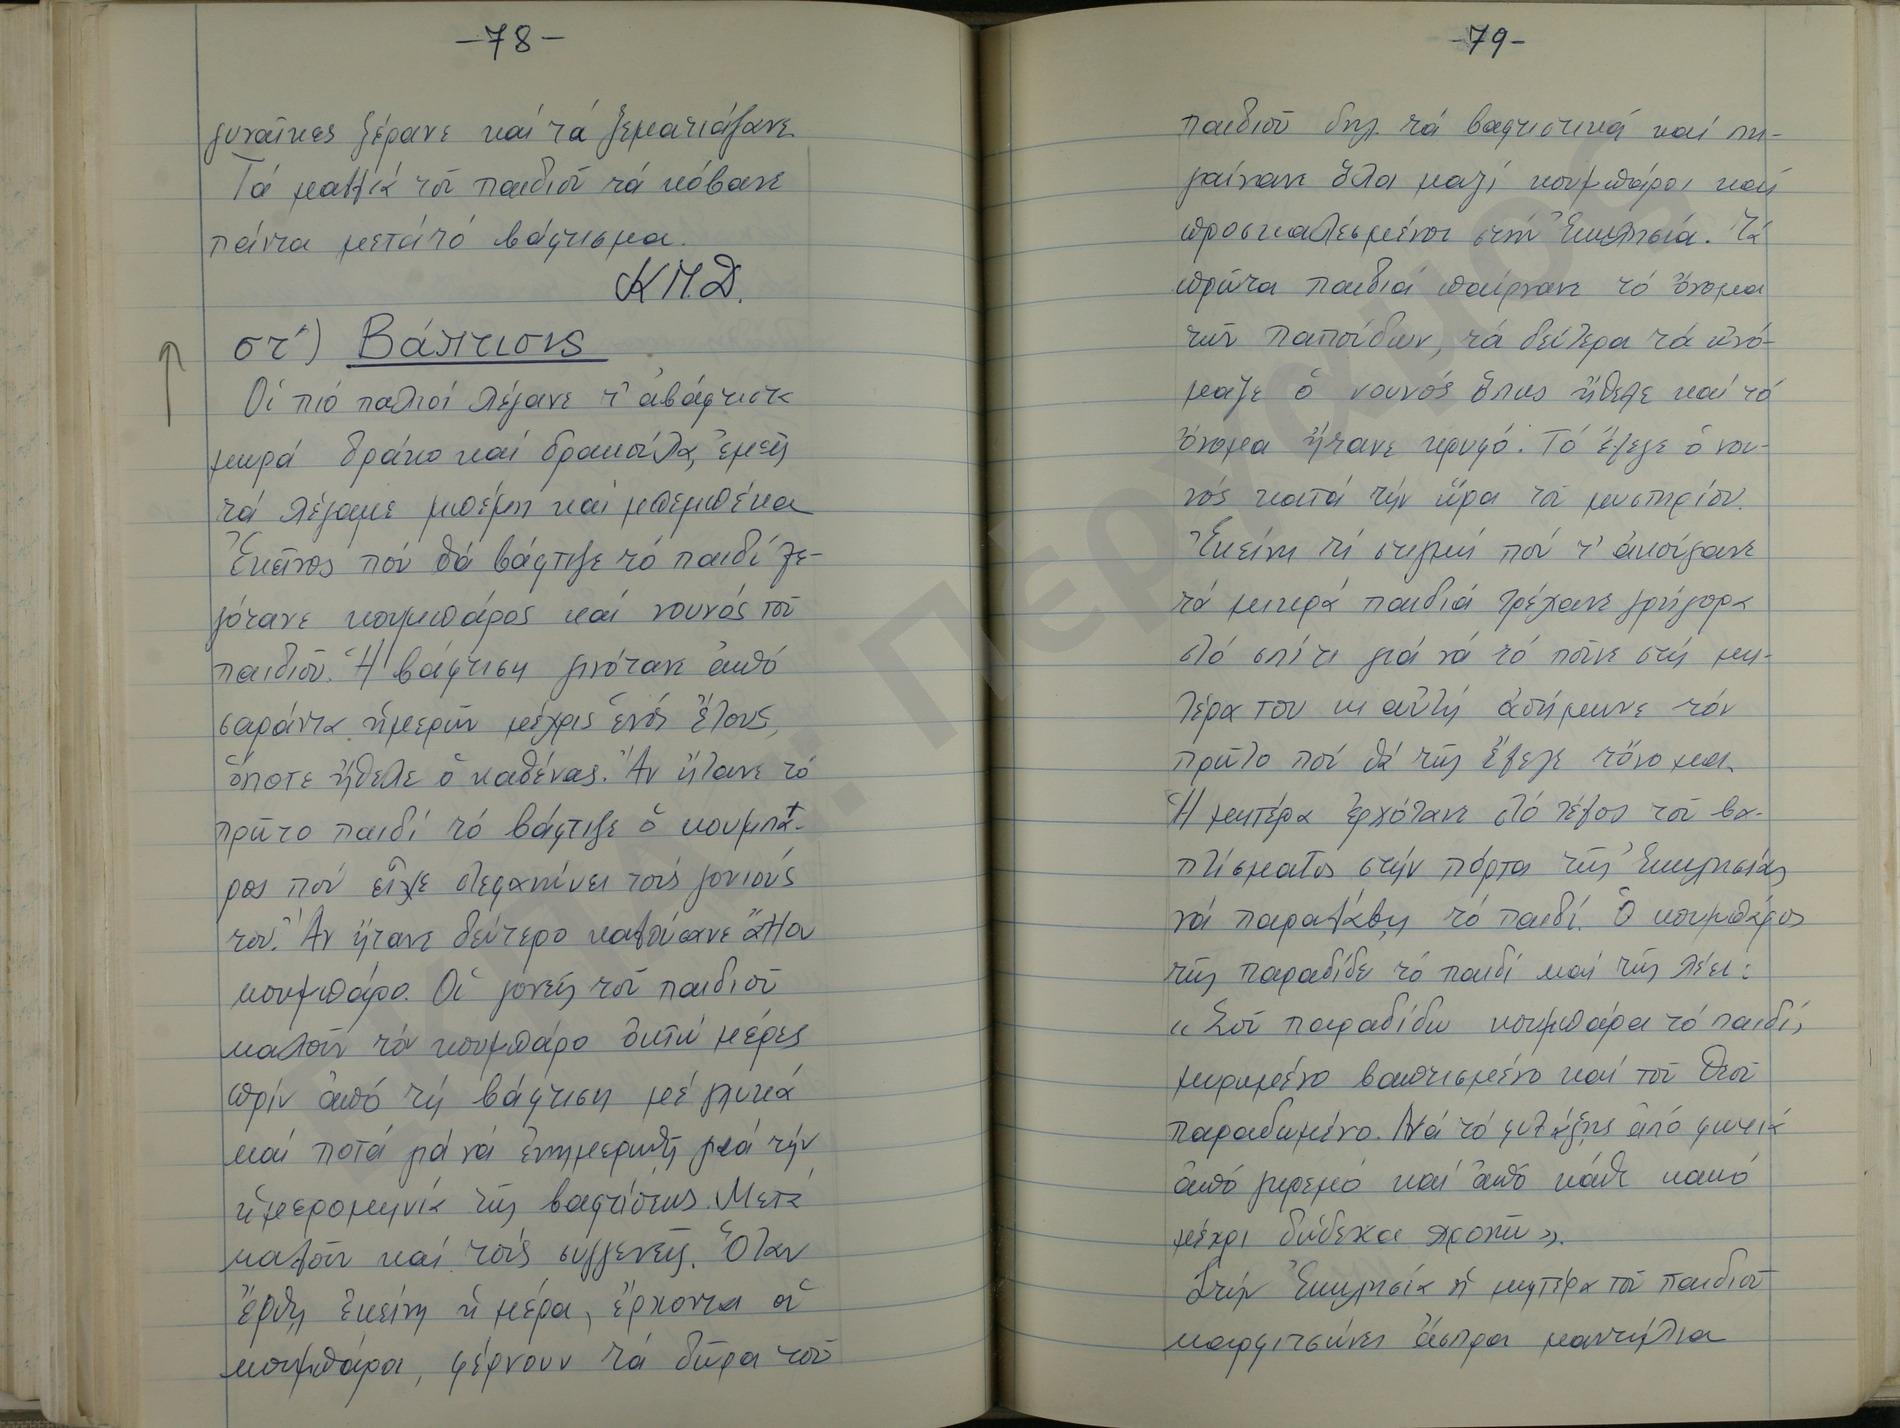 -78-
γυναῖκες ξέρανε καί τά ξεματιάζανε
Τά μαλλιά τοῦ παιδιοῦ τά κόβανε
πάντα μετά τό βάφτισμα.
Κ.Μ.Δ.
στ') Βάπτισις
Οἱ πιό παλιοί λέγανε τ' ἀβάφτιστα
μικρά δράκο καί δρακούλα, ἐμεῖς
τά λέγαμε μπέμπη καί μπεμπέκα
Ἐκεῖνος πού θά βάφτιζε τό παιδί λε-
γότανε κουμπάρος καί νουνός τοῦ
παιδιοῦ. Ἡ βάφτιση γινότανε ἀπό
σαράντα ἡμερῶν μέχρις ἑνός ἔτους,
ὅποτε ἤθελε ὁ καθένας. Ἄν ἤτανε τό
πρῶτο παιδί τό βάφτιζε ὁ κουμπά-
ρος πού εἶχε στεφανώνει τούς γονιούς
του. Ἄν ἤτανε δεύτερο καλούσανε ἄλλον
κουμπάρο. Οἱ γονεῖς τοῦ παιδιοῦ
καλοῦν τόν κουμπάρο ὀκτώ μέρες
πρίν ἀπό τή βάφτιση μέ γλυκά
καί ποτά γιά νά ἐνημερωθῆ γιά τήν
ἡμερομηνία τῆς βαφτίσεως. Μετά
καλοῦν καί τούς συγγενεῖς. Ὅταν
ἔρθη ἐκείνη ἡ μέρα, ἔρχονται οἱ
κουμπάροι, φέρνουν τά δῶρα τοῦ
-79-
παιδιοῦ δηλ. τά βαφτιστικά καί πη-
γαίνανε ὅλοι μαζί κουμπάροι καί
προσκαλεσμένοι στήν Ἐκκλησία. Τά
πρῶτα παιδιά παίρνανε τό ὄνομα
τῶν παππούδων, τά δεύτερα τά ὀνό-
μαζε ὁ νουνός ὅπως ἤθελε καί τό
ὄνομα ἤτανε κρυφό. Τό ἔλεγε ὁ νου-
νός κατά τήν ὥρα τοῦ μυστηρίου.
Ἐκείνη τή στιγμή πού τ' ἀκούγανε
τά μικρά παιδιά τρέχανε γρήγορα
στό σπίτι γιά νά τό ποῦνε στή μη-
τέρα του κι αὐτή ἀσήμωνε τόν
πρῶτο πού θά τῆς ἔλεγε τὄνομα.
Ἡ μητέρα ἐρχότανε στό τέλος τοῦ βα-
πτίσματος στήν πόρτα τῆς Ἐκκλησίας
νά παραλάβη τό παιδί. Ὁ κουμπάρος
τῆς παραδίδει τό παιδί καί τῆς λέει:
«Σοῦ παραδίδω κουμπάρα τό παιδί,
μυρωμένο βαπτισμένο καί τοῦ Θεοῦ
παραδωμένο. Νά τό φυλάξης ἀπό φωτιά
ἀπό γκρεμό καί ἀπό κάθε κακό
μέχρι δώδεκα χρονῶ».
Στήν Ἐκκλησία ἡ μητέρα τοῦ παιδιοῦ
καρφιτσώνει ἄσπρα μαντήλια